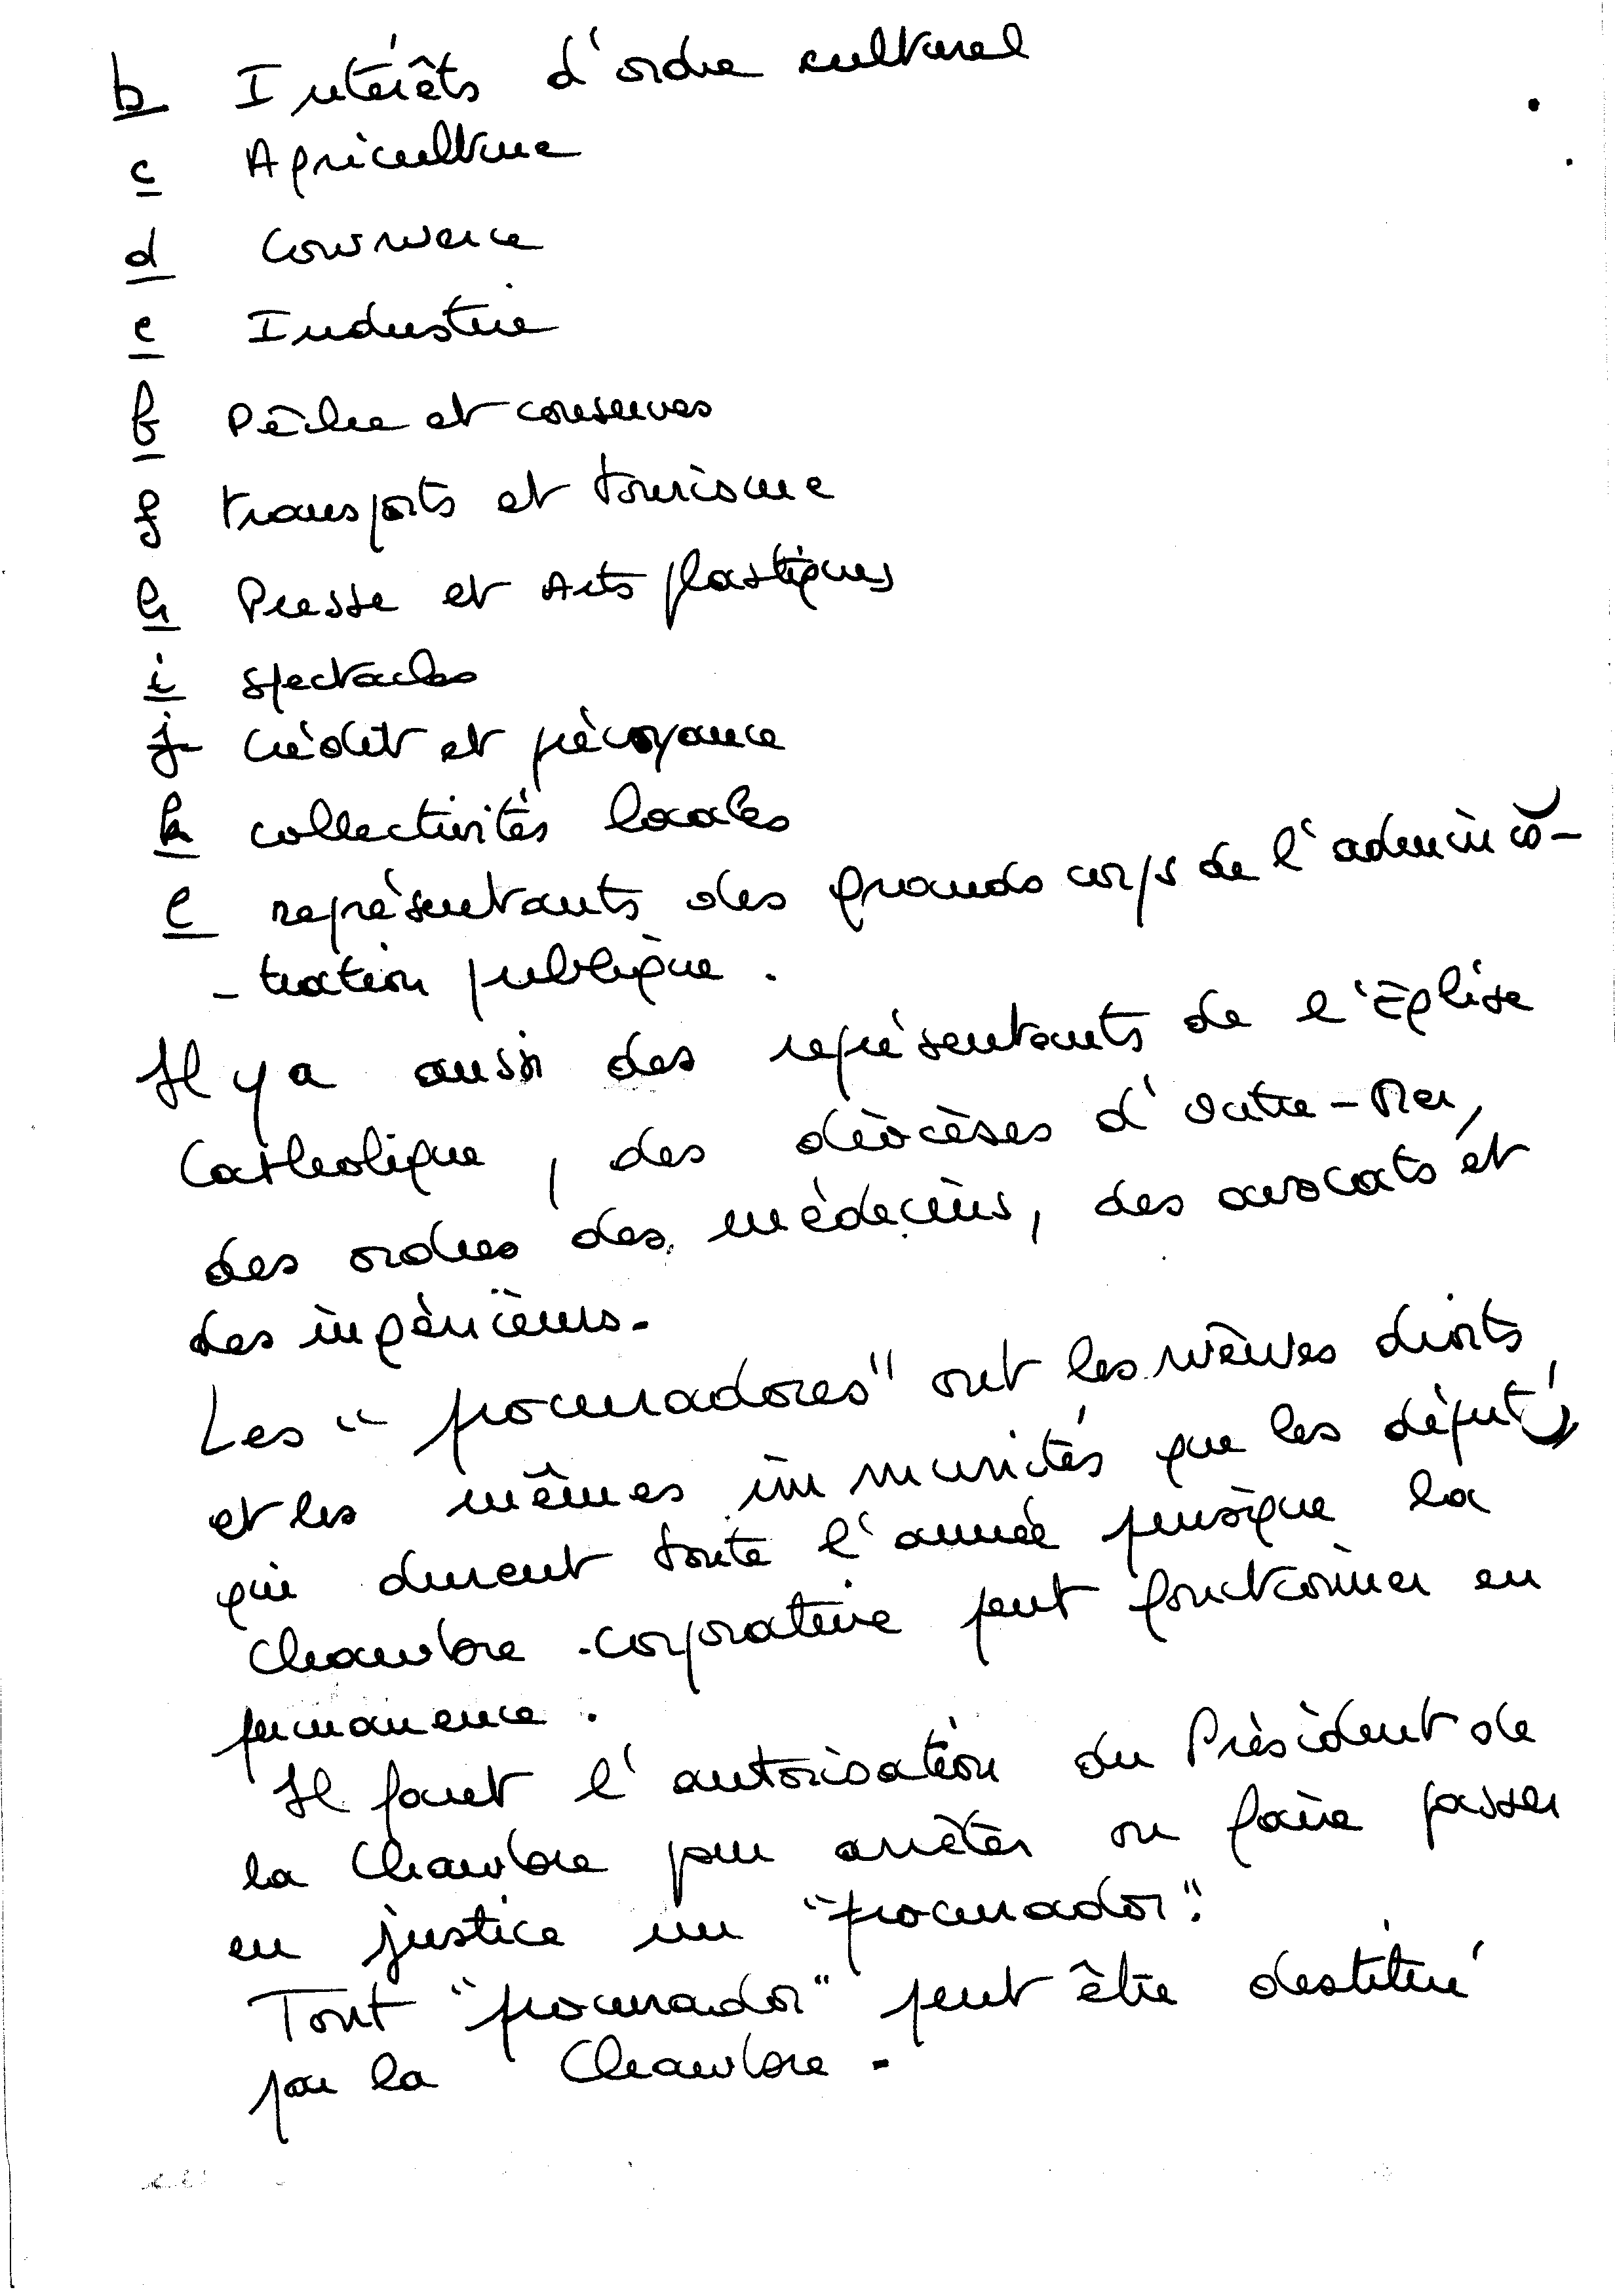 b Intérêts d'ordre culturel
c Agriculture
d Commerce
e Industrie
f Pêche et conserves
g transports et tourisme
h Presse et Arts plastiques
i spectacles
j crédit et prévoyance
k collectivités locales
l représentants des grands corps de l'adminis-
-tration publique.
Il y a aussi des représentants de l'Eglise
Catholique, des diocèses d'Outre-Mer,
des ordres des médecins, des avocats et
des ingénieurs.
Les "procuradores" ont les mêmes droits
et les mêmes immunités que les députés,
qui durent toute l'année puisque la
Chambre corporative peut fonctionner en
permanence.
Il faut l'autorisation du Président de
la Chambre pour arrêter ou faire passer
en justice un "procurador".
Tout "procurador" peut être destitué
par la Chambre.